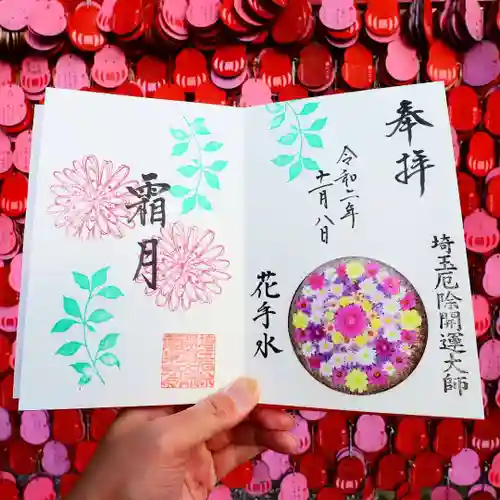 奉拝
令和二年
十一月八日
埼玉厄除開運大師
花手水
霜月